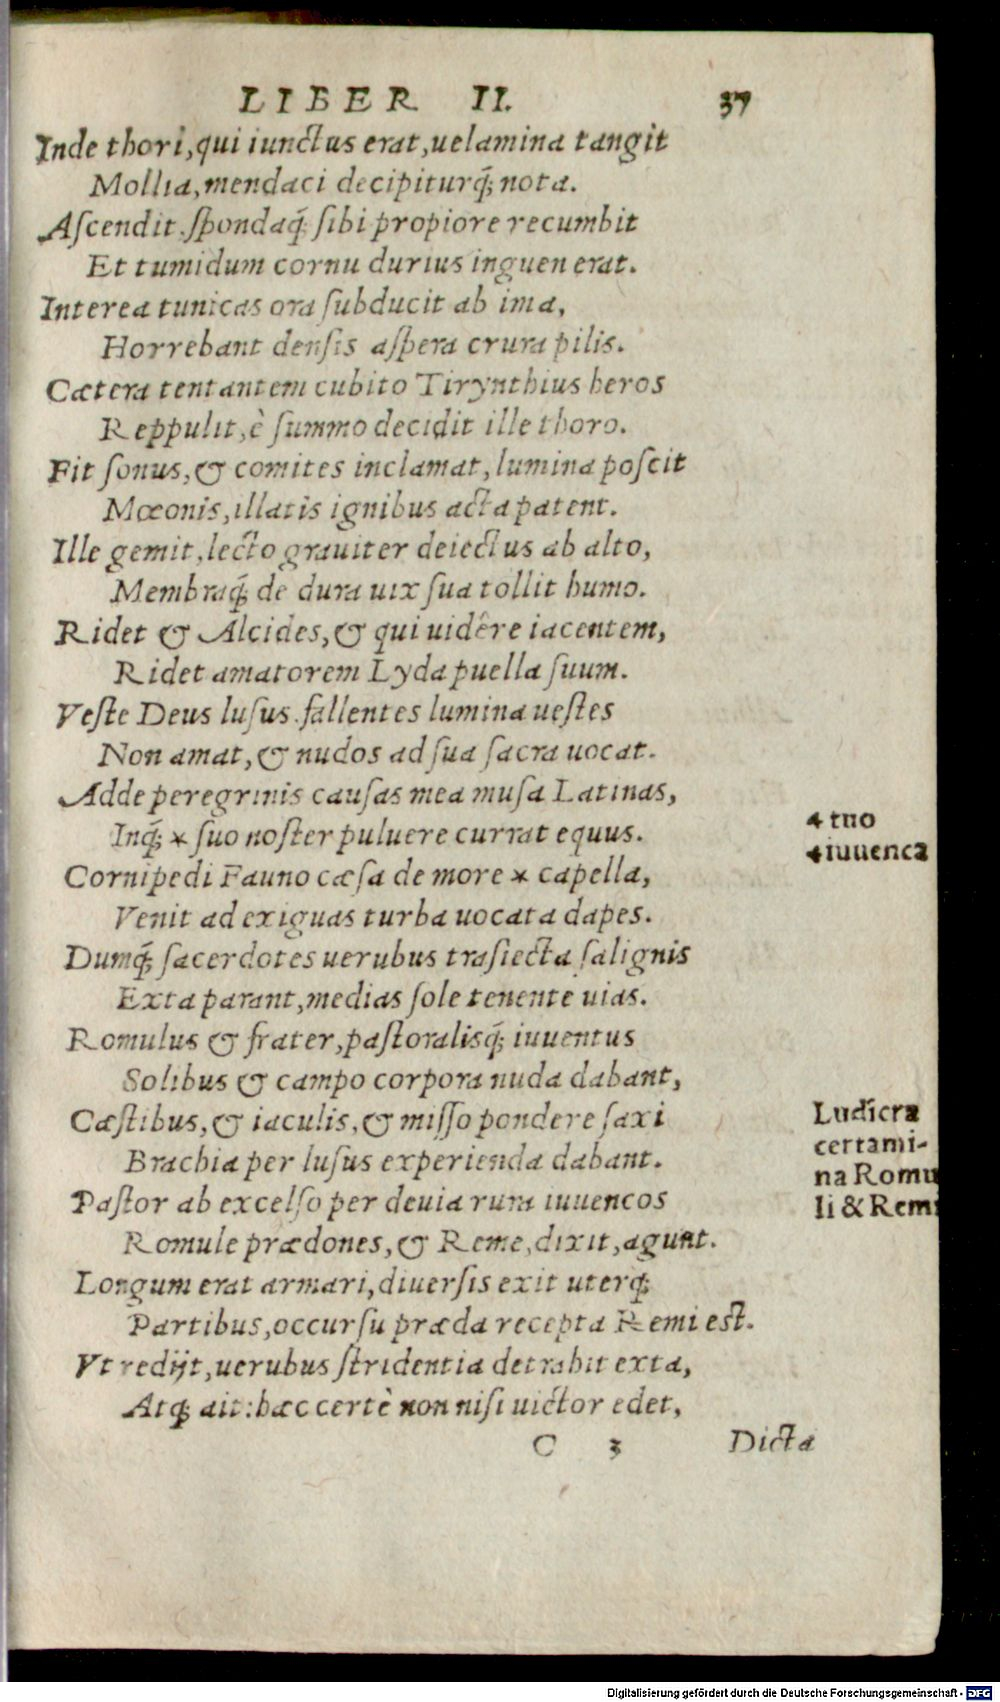 LIBER II. 37
Inde thori, qui iunctus erat, uelamina tangit
Mollia, mendaci decipiturq́; nota.
Ascendit, spondaq́; sibi propiore recumbit
Et tumidum cornu durius inguen erat.
Interea tunicas ora subducit ab ima,
Horrebant densis aspera crura pilis.
Cætera tentantem cubito Tirynthius heros
Reppulit, è summo decidit ille thoro.
Fit sonus, & comites inclamat, lumina poscit
Mœonis, illatis ignibus acta patent.
Ille gemit, lecto grauiter deiectus ab alto,
Membraq́; de dura uix sua tollit humo.
Ridet & Alcides, & qui uidêre iacentem,
Ridet amatorem Lyda puella suum.
Veste Deus lusus, fallentes lumina uestes
Non amat, & nudos ad sua sacra uocat.
Adde peregrinis causas mea musa Latinas,
Inq́; * suo noster puluere currat equus.
4 tuo
4 iuuenca
Cornipedi Fauno cæsa de more * capella,
Venit ad exiguas turba uocata dapes.
Dumq́; sacerdotes uerubus trasiecta salignis
Exta parant, medias sole tenente uias.
Romulus & frater, pastoralisq́; iuuentus
Solibus & campo corpora nuda dabant,
Cæstibus, & iaculis, & misso pondere saxi
Brachia per lusus experienda dabant.
Ludicra
certami-
na Romu
li & Remi
Pastor ab excelso per deuia rura iuuencos
Romule prædones, & Reme, dixit, agunt.
Longum erat armari, diuersis exit uterq́;
Partibus, occursu præda recepta Remi est.
Vt redijt, uerubus stridentia detrahit exta,
Atq; ait: hæc certè non nisi uictor edet,
C 3 Dicta
Digitalisierung gefördert durch die Deutsche Forschungsgemeinschaft - DFG